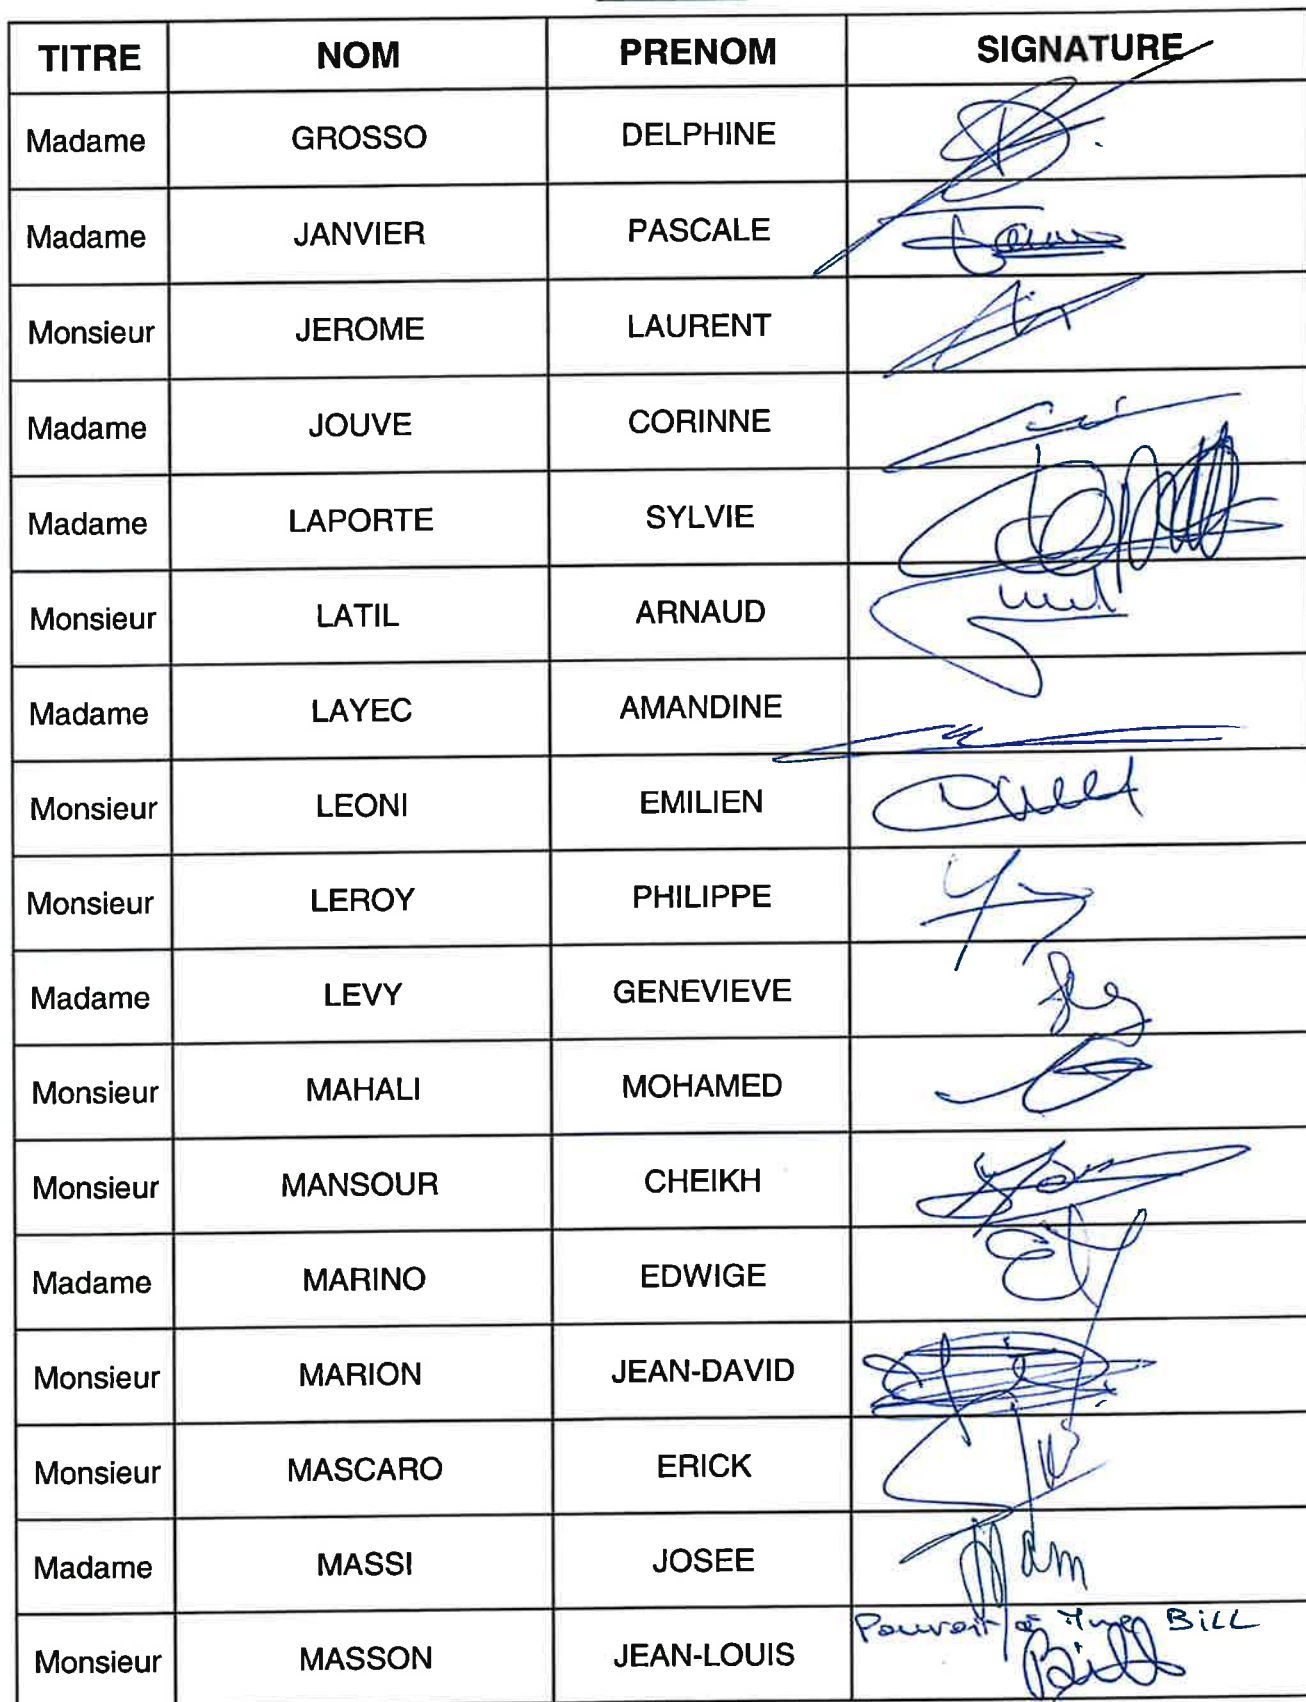 TITRE NOM PRENOM SIGNATURE
Madame GROSSO DELPHINE
Madame JANVIER PASCALE
Monsieur JEROME LAURENT
Madame JOUVE CORINNE
Madame LAPORTE SYLVIE
Monsieur LATIL ARNAUD
Madame LAYEC AMANDINE
Monsieur LEONI EMILIEN
Monsieur LEROY PHILIPPE
Madame LEVY GENEVIEVE
Monsieur MAHALI MOHAMED
Monsieur MANSOUR CHEIKH
Madame MARINO EDWIGE
Monsieur MARION JEAN-DAVID
Monsieur MASCARO ERICK
Madame MASSI JOSEE
Monsieur MASSON JEAN-LOUIS Pouvoir à Mme BILL